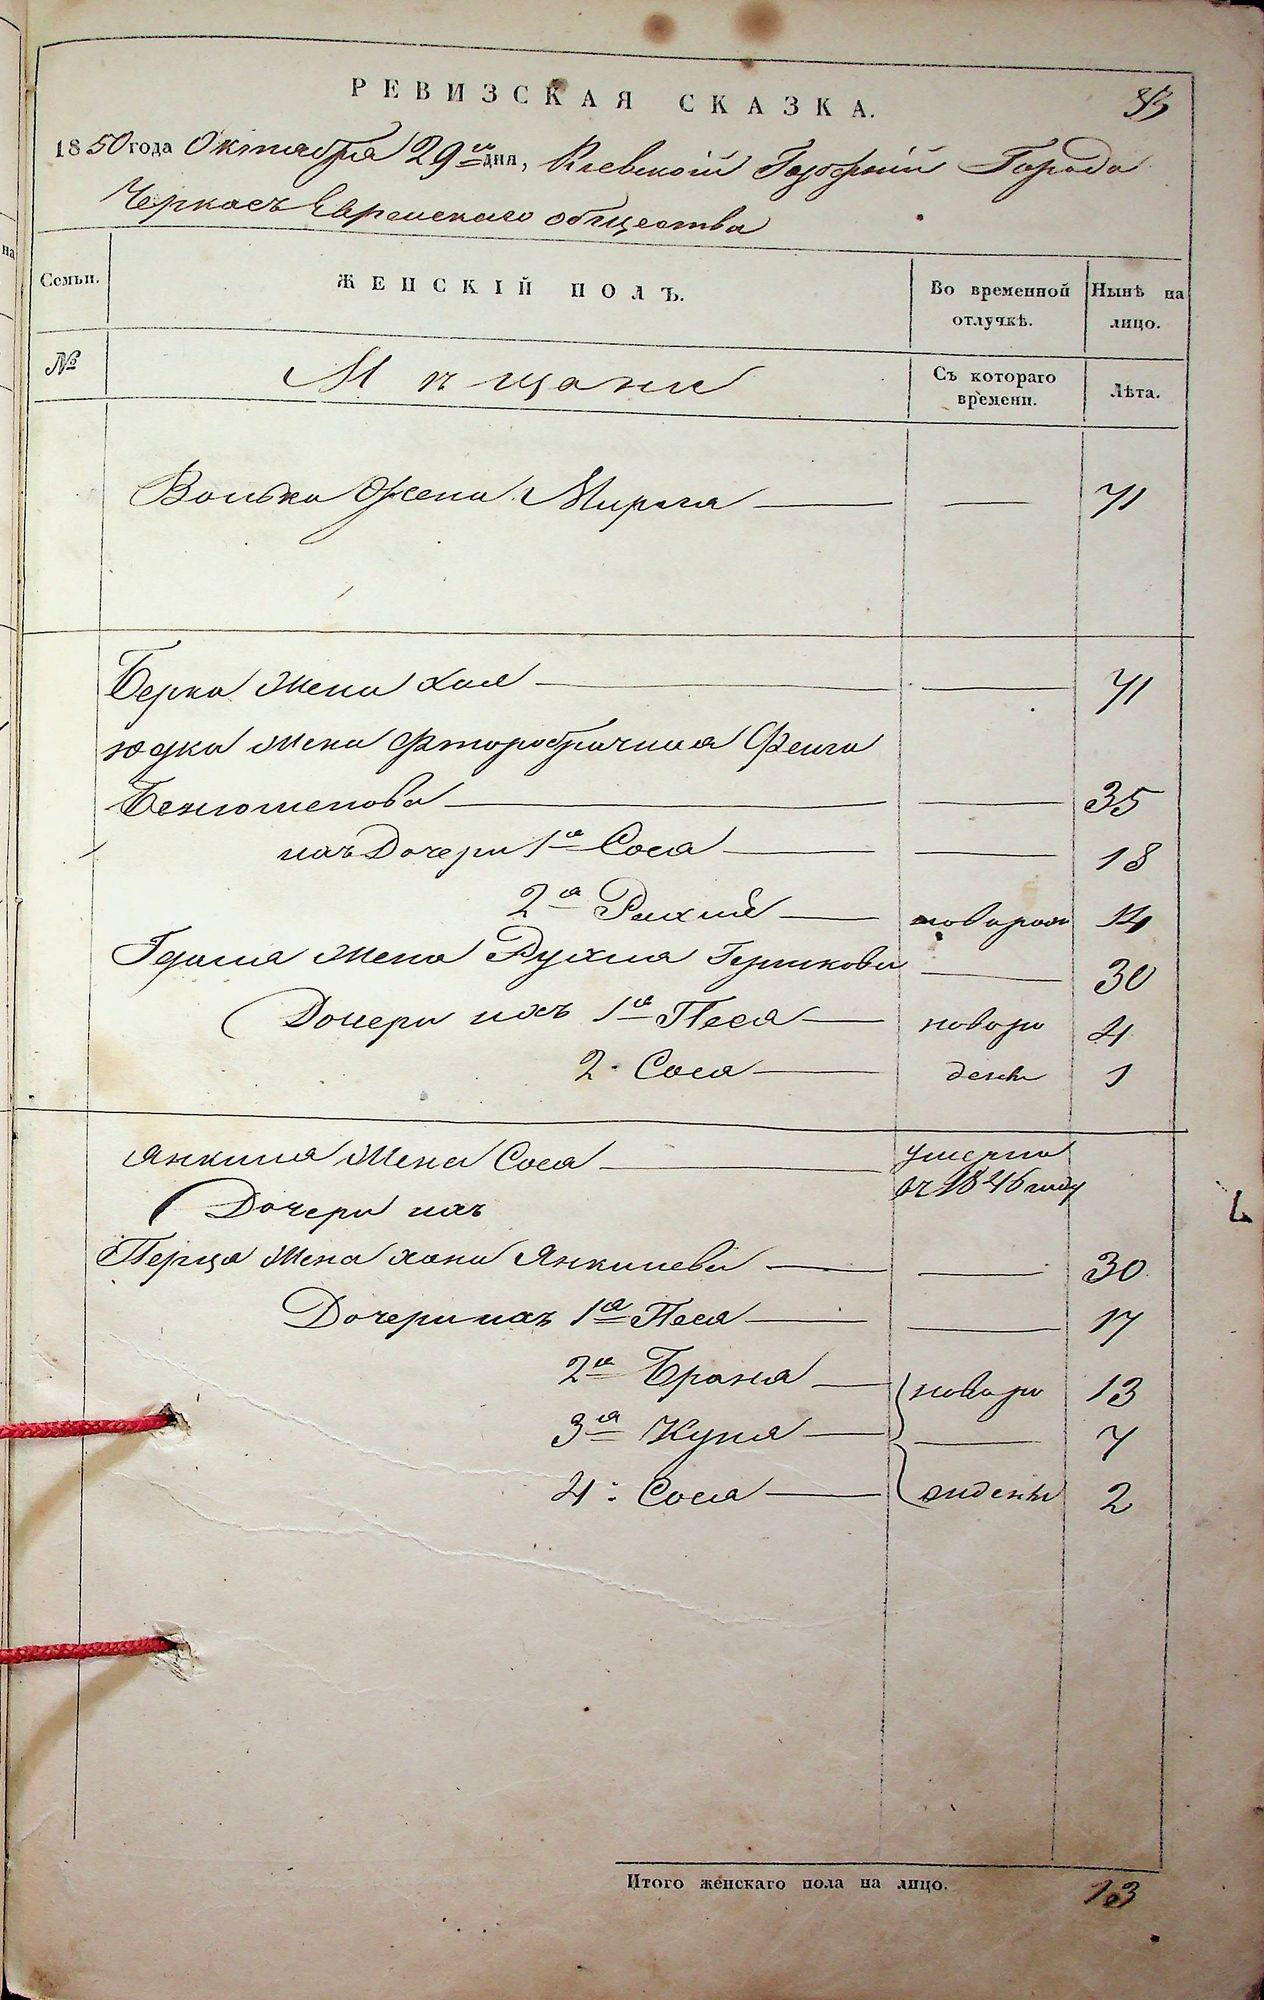 83
РЕВИЗСКАЯ СКАЗКА.
1850 года Октября 29го дня, Киевской Губерніи Города
Черкасъ Еврейского общества
Семьи.
ЖЕНСКІЙ ПОЛЪ.
Во временной отлучкѣ.
Нынѣ на лицо.
№
Мѣщане
Съ котораго времени.
Лѣта.
Волька жена Мирля — — 71
Берка жена Хая — — 71
Юдка жена фторобрачная Фейга
Бенюменова — — 35
ихъ Дочери 1я Сося — — 18
2я Рыхля — новорож 14
Жена Рухля Гершкова — 30
Дочери ихъ 1я Песя — новоро 4
2. Сося — дены 1
Янкиля жена Сося — умерла
въ 1846 году
Дочери ихъ
Перца жена Хана Янкилева — — 30
Дочери ихъ 1я Песя — — 17
2я Брана — новоро 13
3я Куня — — 7
4. Сося — жидены 2
Итого женскаго пола на лицо. 13